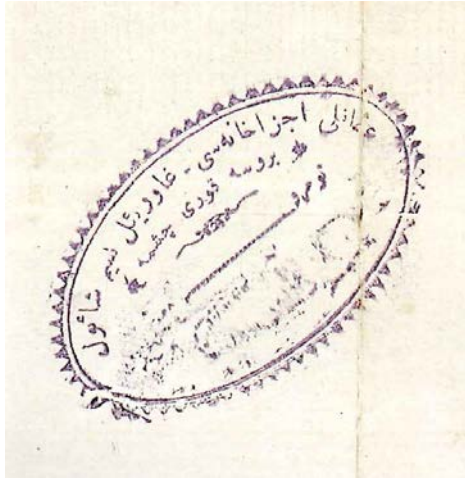 عثمانلی اجزاخانه‌سی - غاوریئل نسیم شائول
* بروسه قوری چشمه *
نومرو